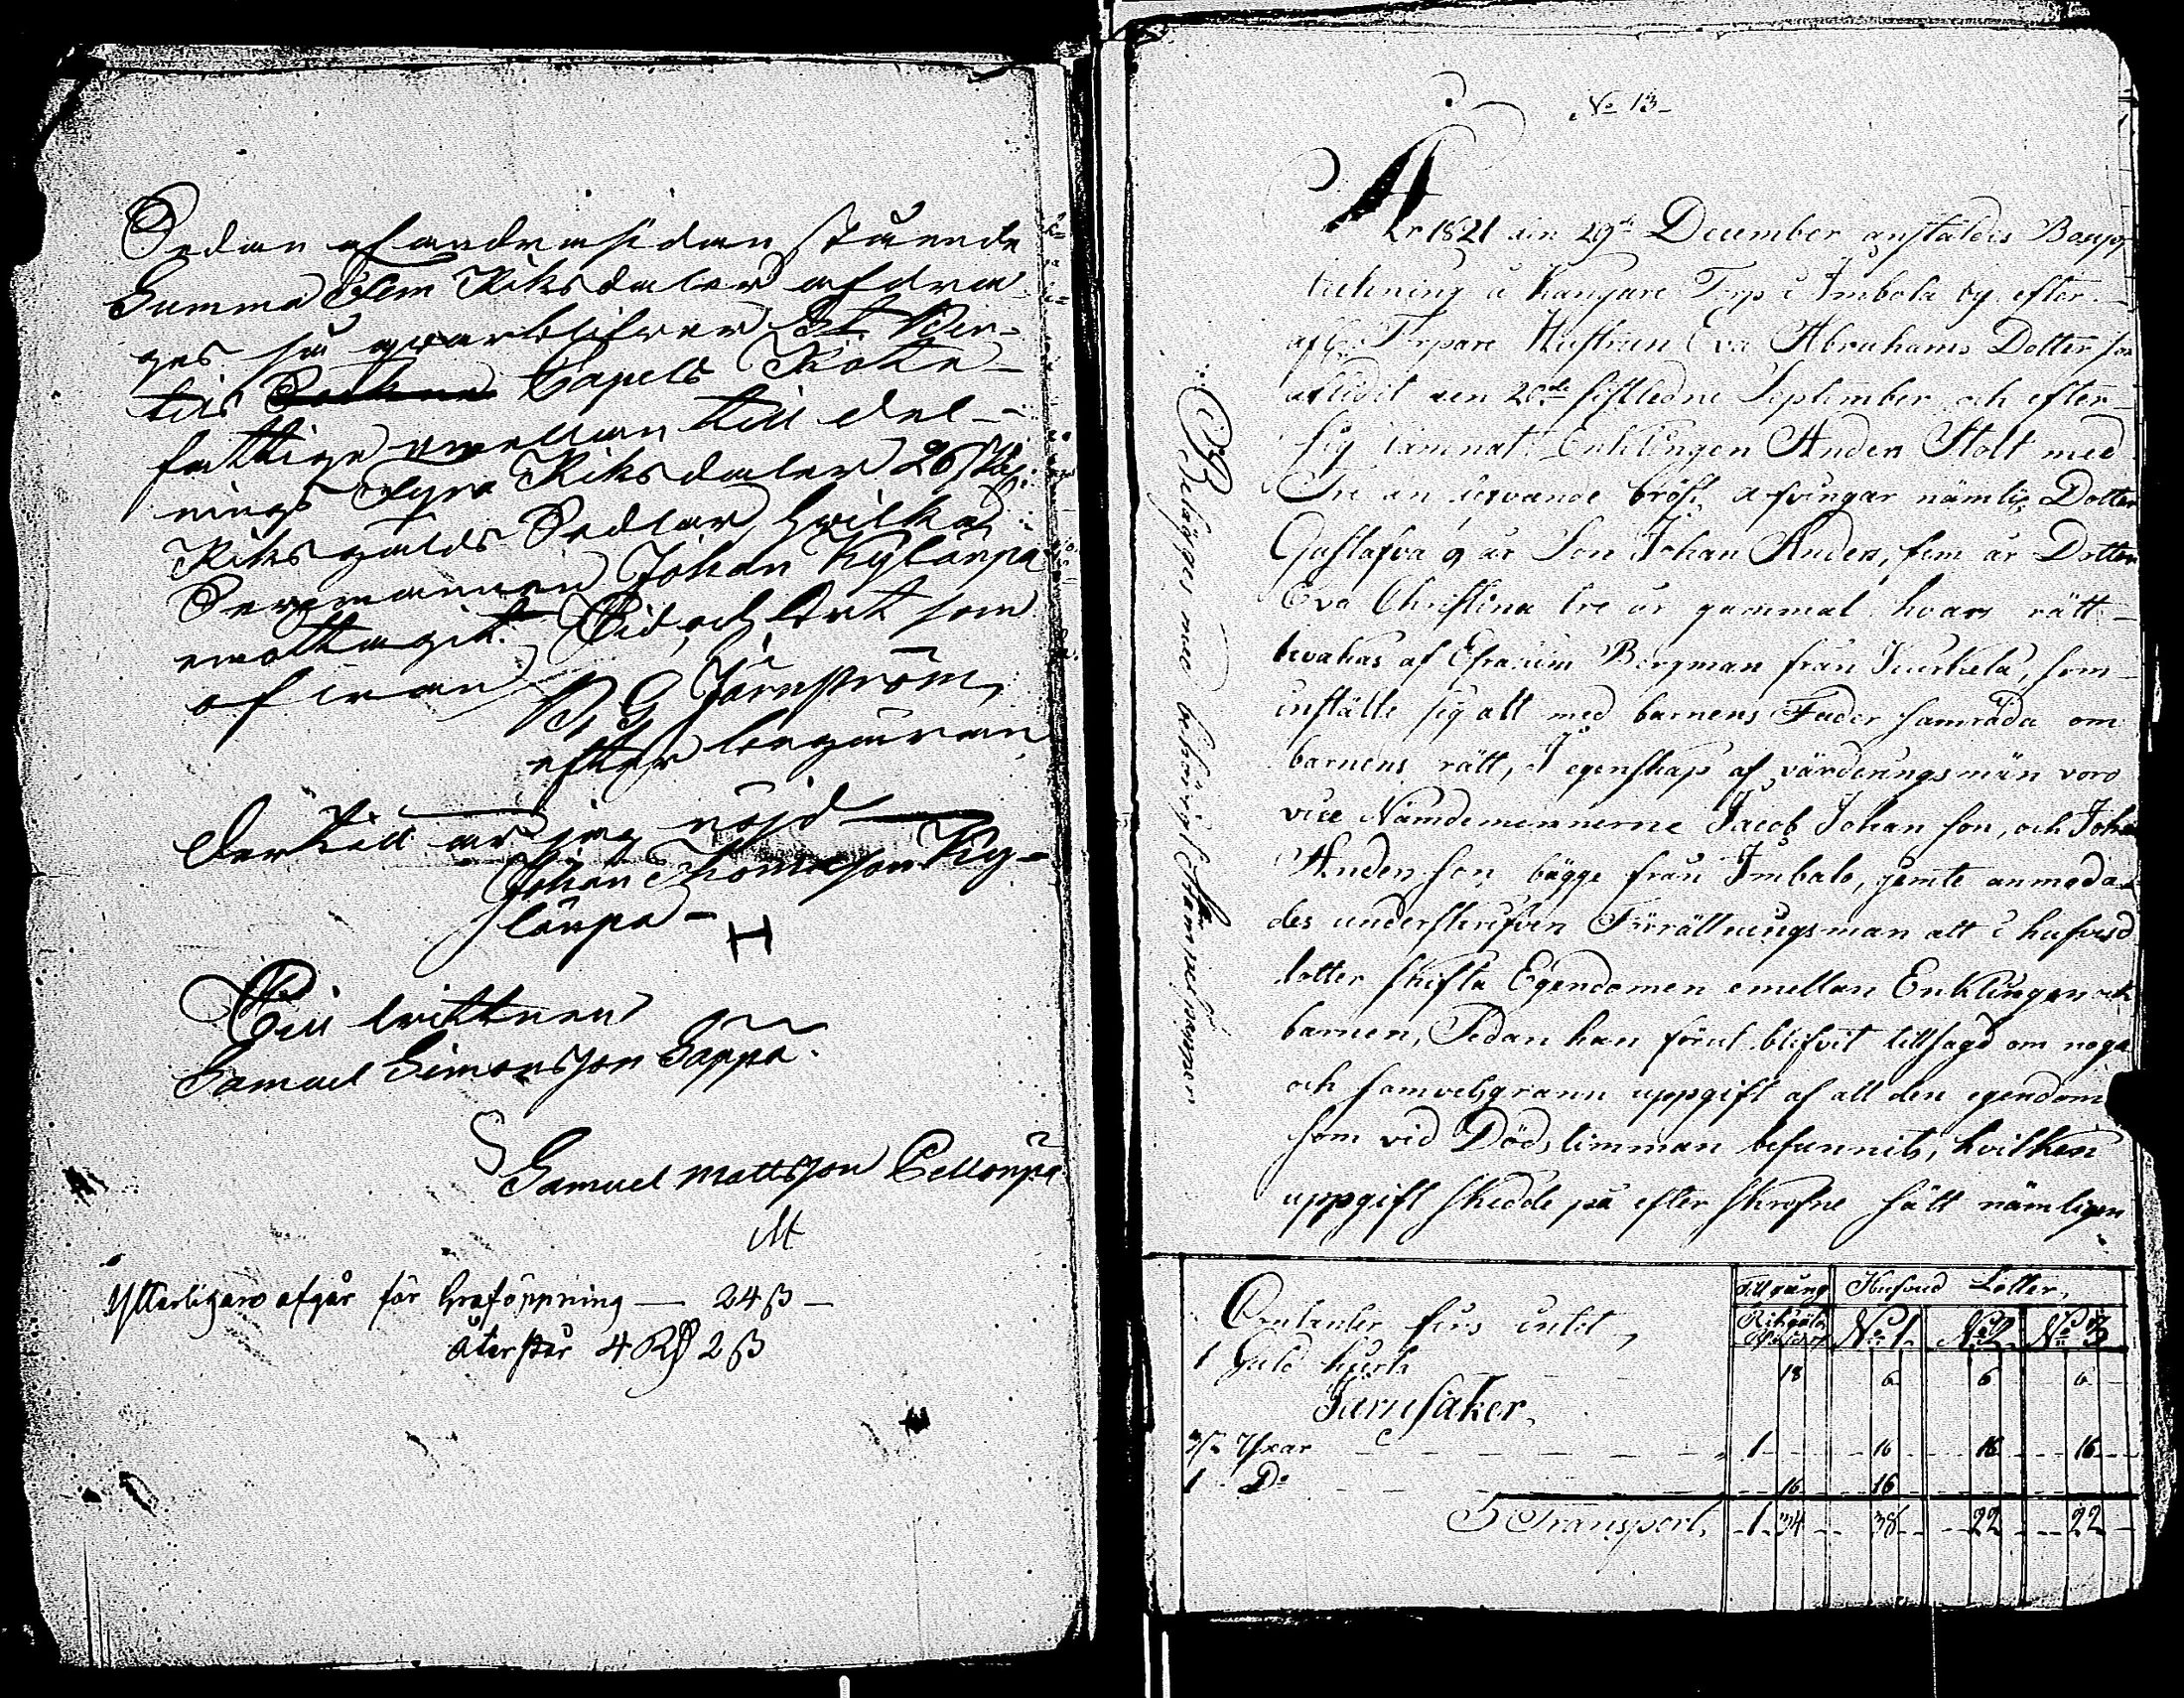 Sedan af andra sidan stående
Summa Fem Riksdaler afdra-
ges så qvarblifver St Ber-
tils Sockne Capels Rote-
fattige emellan till del-
nings Fyra Riksdaler 26 s
Riksgälds Sedlar, hvilka
Sexmannen Johan Kylänpä
emottagit. Tid och Ort som
ofvan.
B. G. Järnström,
efter begäran
Dermed är jag nöjd
Johan Thomasson Ky-
länpä
H
Till vittnen
Samuel Simonsson Sappa.
Samuel Mattsson Pellonpä
Ytterligare afgår för Graföppning — 24 ß —
återstår 4 R 2 ß
No 13
År 1821 den 29de December anstäldes Boupp
teckning å Kangare Torp i Imbola by efter
afl. Torpare Hustrun Eva Abrahams Dotter som
aflidit den 20de sistledne September och efter
sig lämnat Enklingen Anders Stolt med
Tre än lefvande bröst arfvingar nämlig Dotter
Gustafva 9 år Son Johan Anders, fem år Dotter
Eva Christina tre år gammal hvars rätt
bevakas af Efraim Bergman från Kurkela, som
instälte sig att med barnens Fader samråda om
barnens rätt, I egenskap af värderingsmän voro
vice Nämdemännerne Jacob Johan son, och Johan
Anders son, bägge från Imbala, jemte anmoda-
des underskrefven Förrättningsman att i hufvud
lotter skifta Egendomen emellan Enklingen och
barnen, Sedan han förut blifvit tillsagd om noga
och samvetsgrann uppgift af all den egendom
som vid Dödstimman befunnits, hvilken
uppgift skedde på efter skrefne sätt nämligen
Belägges med behörigt
Tillgång Hufvud Lotter,
Contanter fins intet,
Riksgälds No 1. No 2 No 3
1 Guld 18 6 6 6
Järnsaker,
3 st Yxar 1 16 16 16
1 Do 16 16
Transport, 1 34 38 22 22